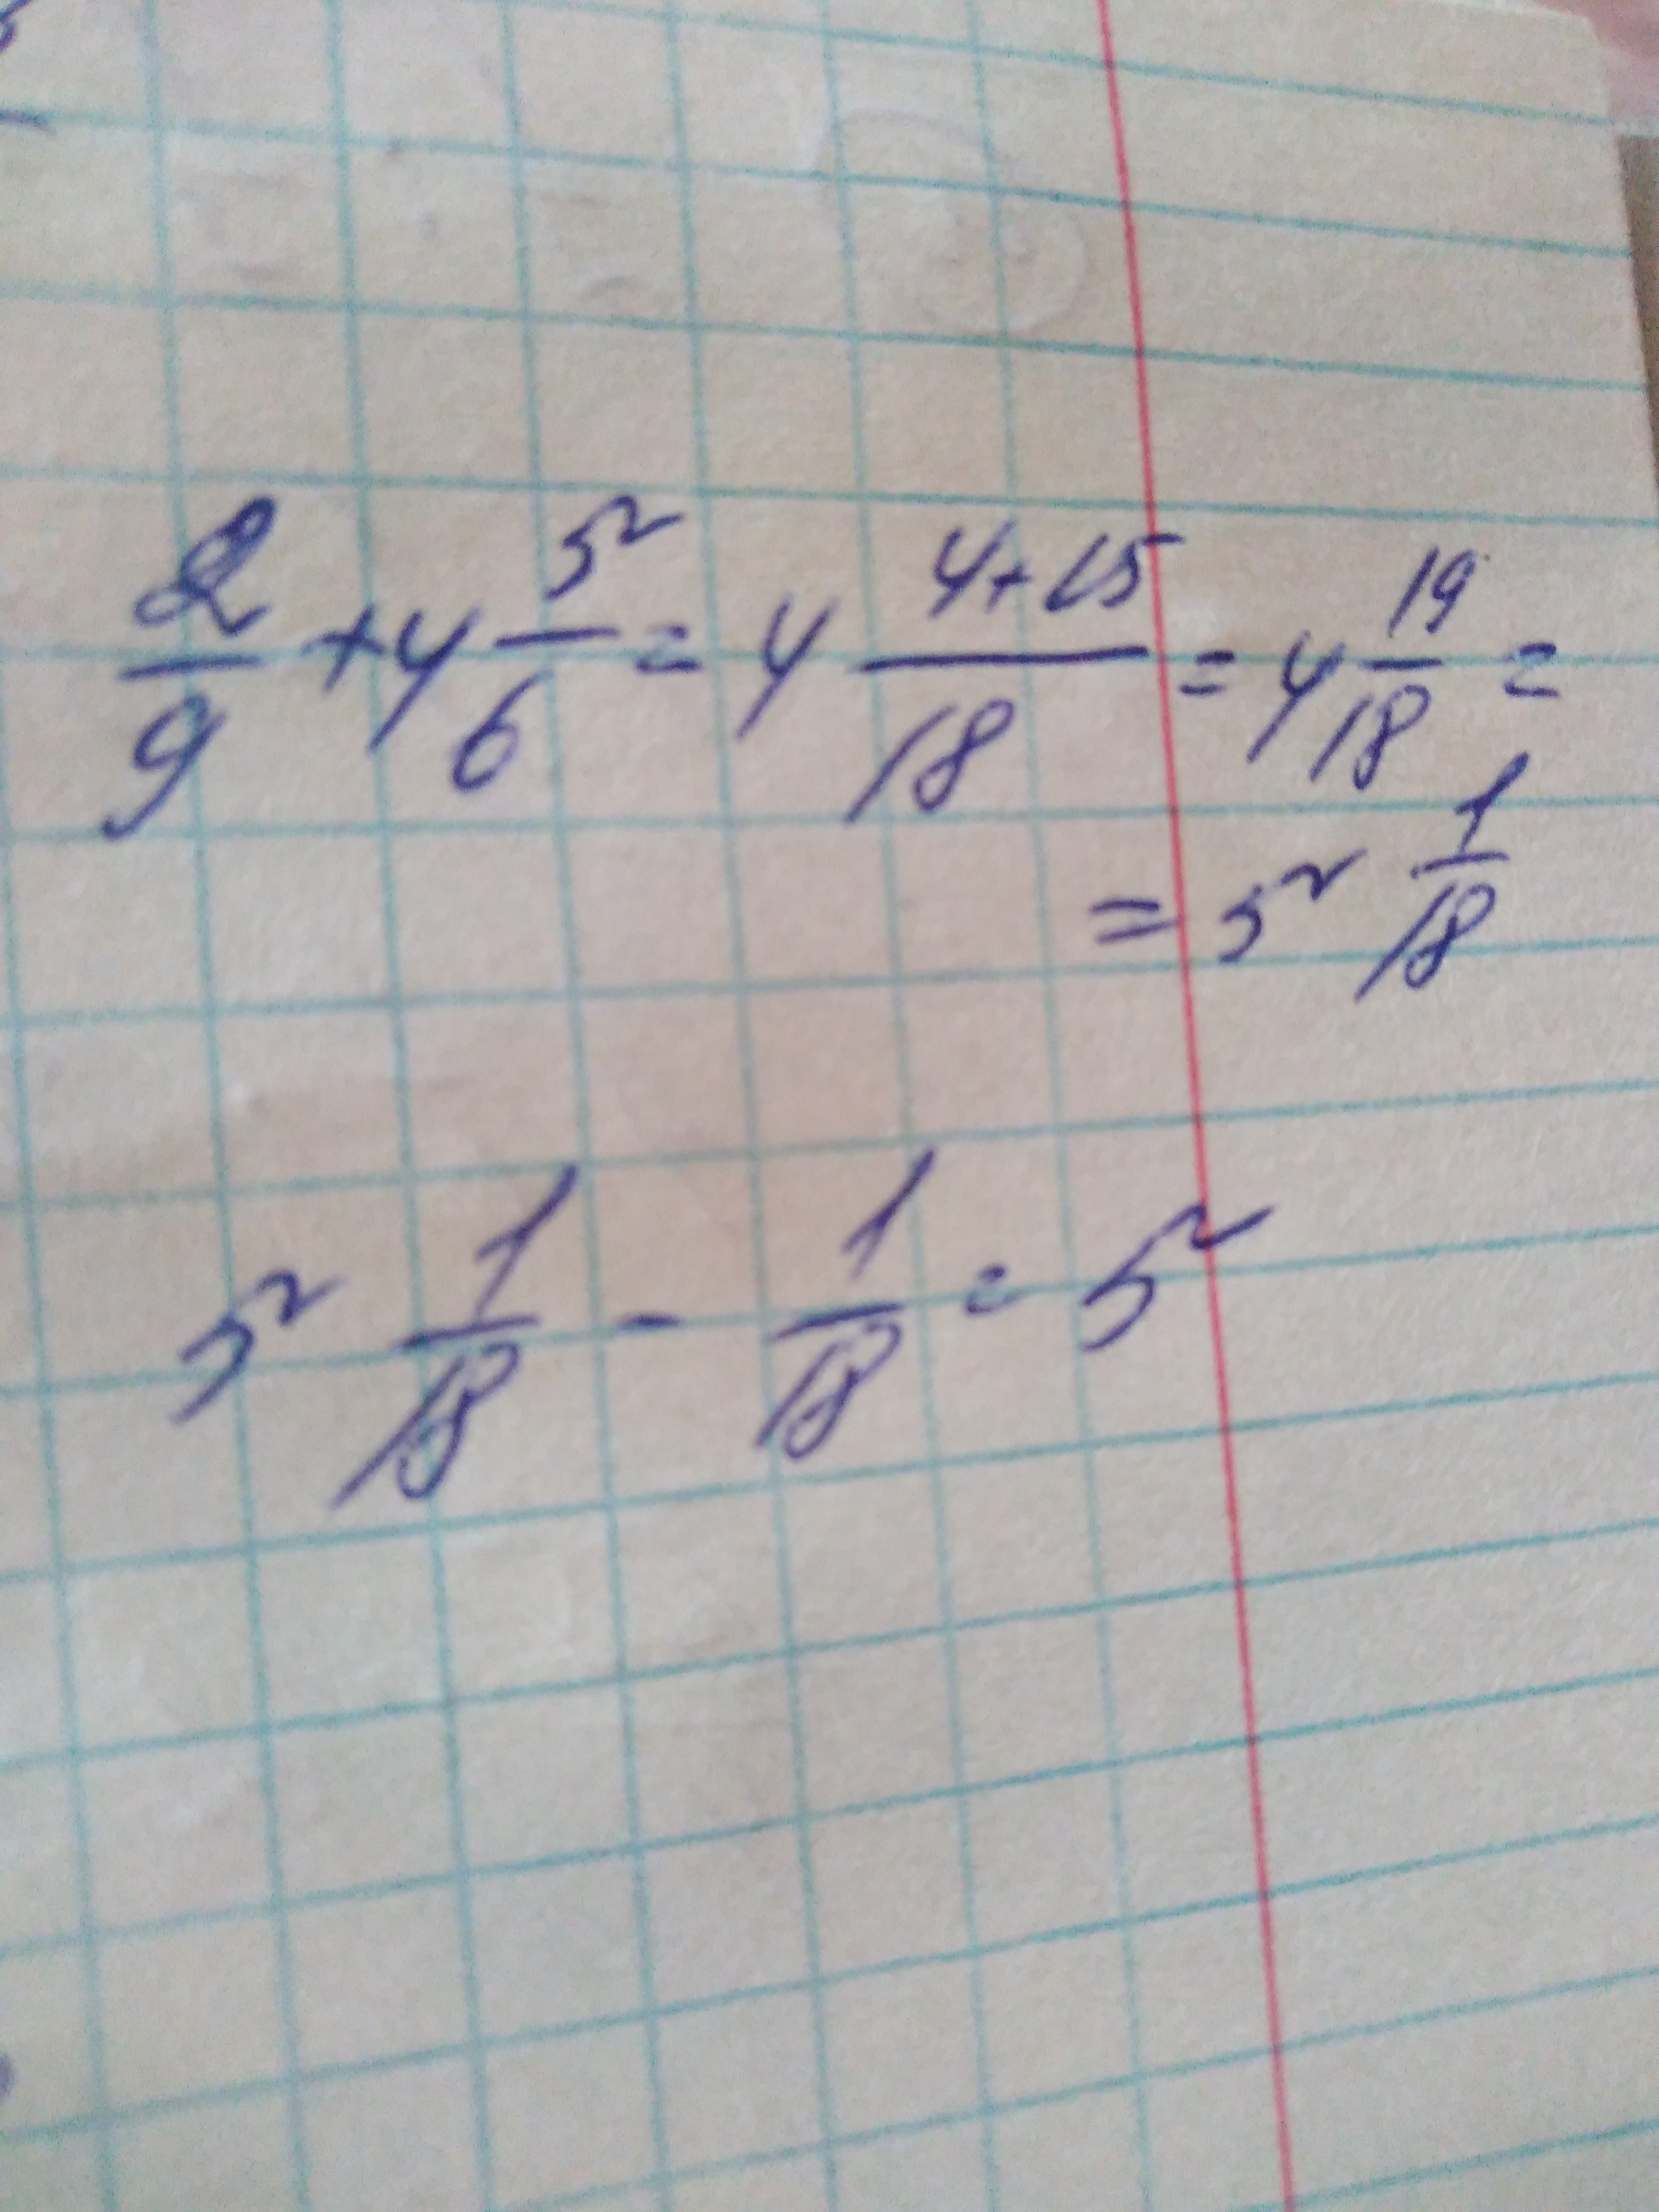 2/9 + 4 5/6 = 4 (4+15)/18 = 4 19/18 =
= 5 1/18
5 1/18 - 1/18 = 5